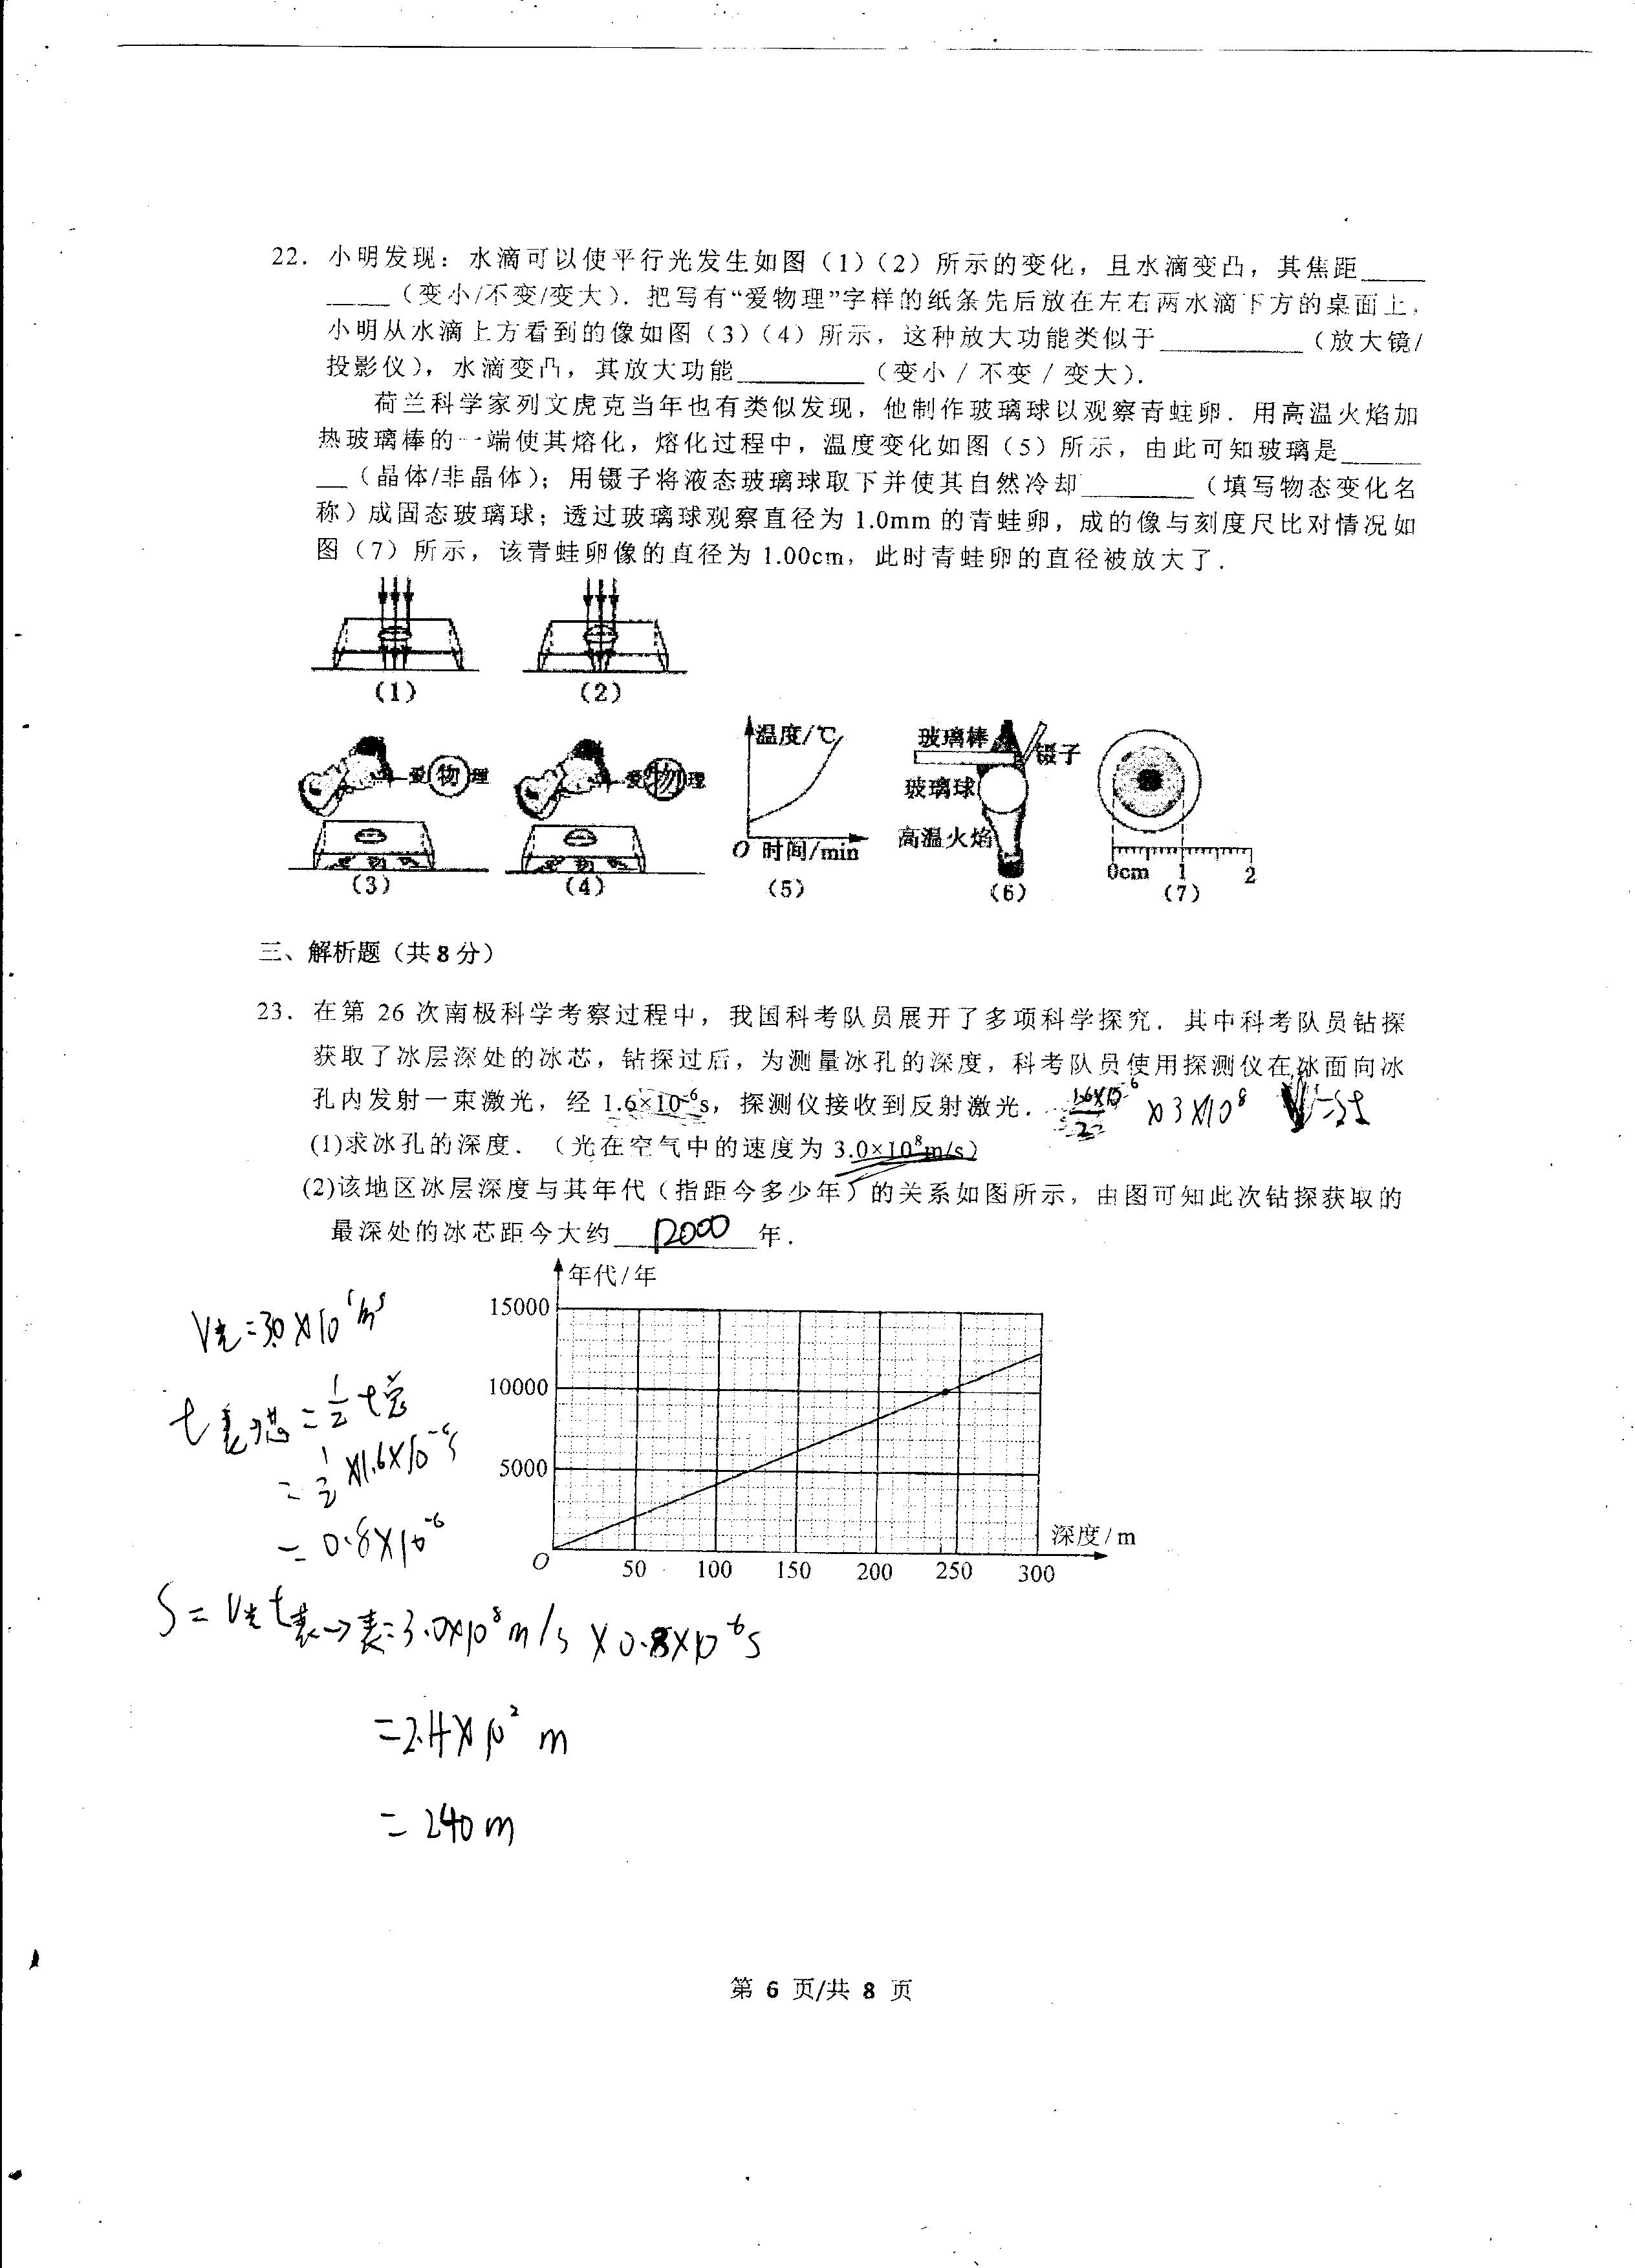 22. 小明发现：水滴可以使平行光发生如图（1）（2）所示的变化，且水滴变凸，其焦距____
____（变小/不变/变大）. 把写有“爱物理”字样的纸条先后放在左右两水滴下方的桌面上，
小明从水滴上方看到的像如图（3）（4）所示，这种放大功能类似于__________（放大镜/
投影仪），水滴变凸，其放大功能_________（变小 / 不变 / 变大）.
荷兰科学家列文虎克当年也有类似发现，他制作玻璃球以观察青蛙卵. 用高温火焰加
热玻璃棒的一端使其熔化，熔化过程中，温度变化如图（5）所示，由此可知玻璃是_____
__（晶体/非晶体）；用镊子将液态玻璃球取下并使其自然冷却________（填写物态变化名
称）成固态玻璃球；透过玻璃球观察直径为 1.0mm 的青蛙卵，成的像与刻度尺比对情况如
图（7）所示，该青蛙卵像的直径为 1.00cm，此时青蛙卵的直径被放大了.
(1)
(2)
爱物理
(3)
爱物理
(4)
温度/℃
O 时间/min
(5)
玻璃棒
镊子
玻璃球
高温火焰
(6)
0cm 1 2
(7)
三、解析题（共 8 分）
23. 在第 26 次南极科学考察过程中，我国科考队员展开了多项科学探究. 其中科考队员钻探
获取了冰层深处的冰芯，钻探过后，为测量冰孔的深度，科考队员使用探测仪在冰面向冰
孔内发射一束激光，经 1.6×10⁻⁶s，探测仪接收到反射激光.
1.6×10⁻⁶/2 ×3×10⁸
(1)求冰孔的深度. （光在空气中的速度为 3.0×10⁸m/s）
(2)该地区冰层深度与其年代（指距今多少年）的关系如图所示，由图可知此次钻探获取的
最深处的冰芯距今大约 12000 年.
年代/年
15000
10000
5000
O 50 100 150 200 250 300
深度/m
V光=3.0×10
=1/2 t总
=1/2×1.6×10
=0.8×10⁻⁶
S=V光t表→表=3.0×10⁸m/s×0.8×10⁻⁶s
=2.4×10² m
=240m
第 6 页/共 8 页